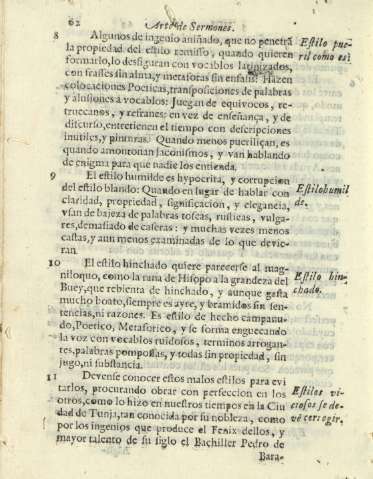 62 Arte de Sermones.
8 Algunos de ingenio aniñado, que no penetrã
la propiedad del estilo remisso, quando quieren
formarlo, lo desfiguran con vocablos latinizados,
con frasses sin alma, y metaforas sin enfasis. Hazen
colocaciones Poeticas, transposiciones de palabras
y alusiones a vocablos: Juegan de equivocos, re-
truecanos, y refranes: en vez de enseñança, y de
discurso, entretienen el tiempo con descripciones
inutiles, y pinturas. Quando menos pueriliçan, es
quando amontonan laconismos, y van hablando
de enigma para que nadie los entienda.
Estilo pue-
ril como es?
9 El estilo humilde es hypocrita, y corrupcion
del estilo blando: Quando en lugar de hablar con
claridad, propriedad, significacion, y elegancia,
vsan de bajeza de palabras toscas, rusticas, vulga-
res, demasiado de caseras: y muchas vezes menos
castas, y aun menos examinadas de lo que devie-
ran.
Estilo humil
de.
10 El estilo hinchado quiere parecerse al mag-
niloquo, como la rana de Hisopo a la grandeza del
Buey, que rebienta de hinchado, y aunque gasta
mucho boato, siempre es ayre, y bramidos sin sen-
tencias, ni razones. Es estilo de hecho campanu-
do, Poetico, Metaforico, y se forma enguecando
la voz con vocablos ruidosos, terminos arrogan-
tes, palabras pomposas, y todas sin propiedad, sin
jugo, ni substancia.
Estilo hin-
chado.
11 Devense conocer estos malos estilos para evi
tarlos, procurando obrar con perfeccion en los
otros, como lo hizo en nuestros tiempos en la Ciu
dad de Tunja, tan conocida por su nobleza, como
por los ingenios que produce el Fenix dellos, y
mayor talento de su siglo el Bachiller Pedro de
Estilos vi-
ciosos se de-
vẽ corregir.
Bara-